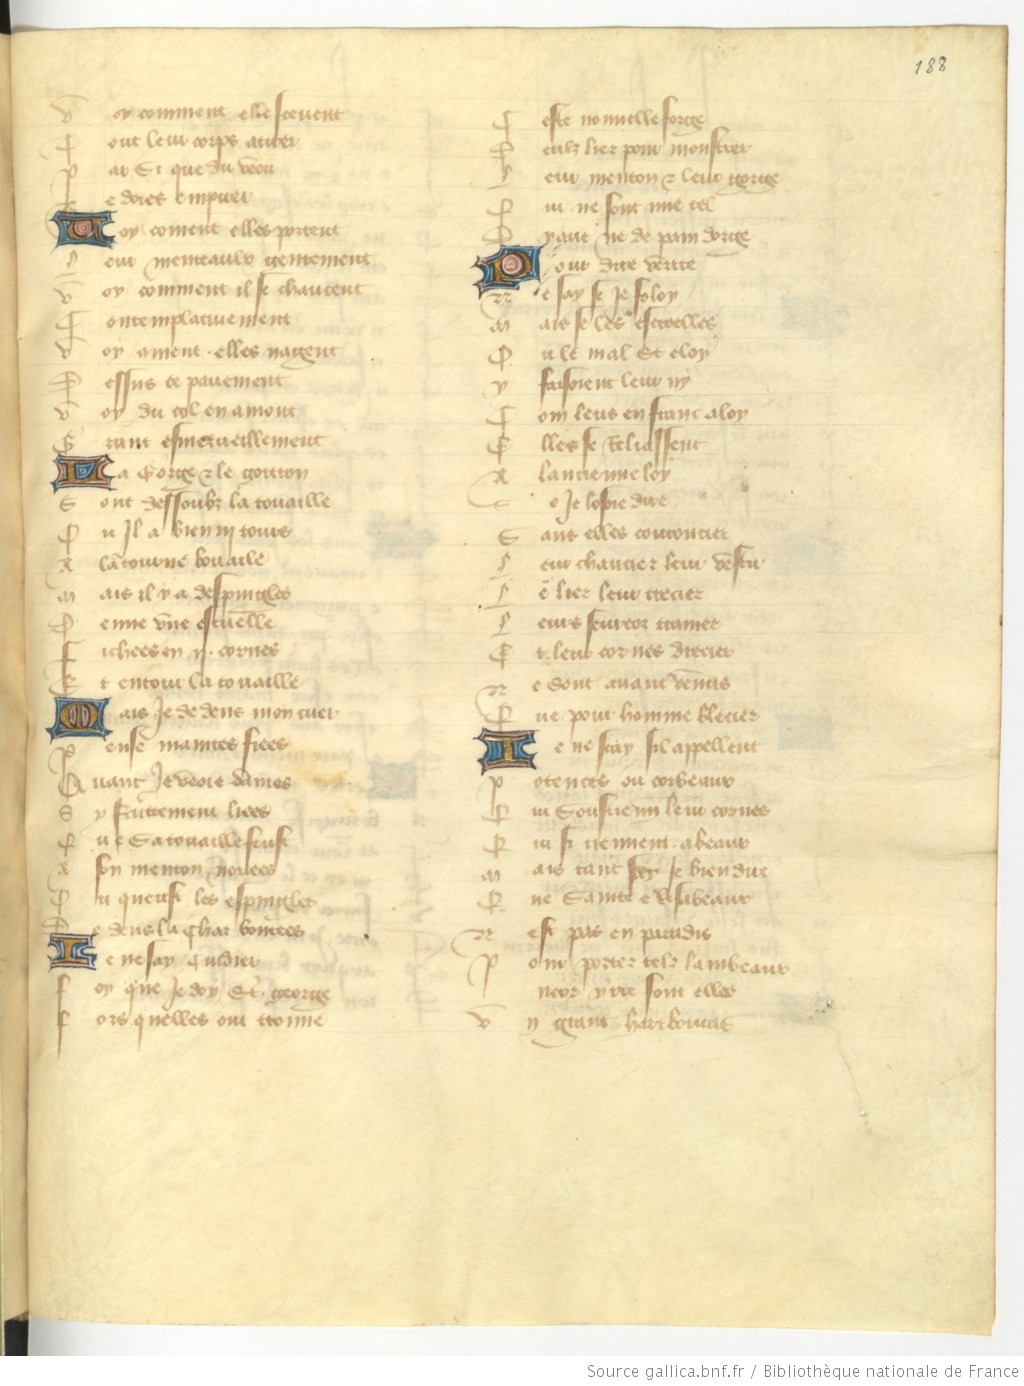 188
Voy comment elle scevent
Tout leur corps atirer
Par St que du venu
De dores empuer
Voy coment elles portent
Leur menteaulx gentement
Voy comment il se chaucent
Contemplativement
Voy ament elles nagent
Dessus ce pavement
Voy du col en amont
Grant esmerveillement
La gorge & le goitron
Sont dessoubz la touaille
Ou Il a bien iii tours
A la tourne bouaile
Mais il y a despingles
Demie une escuelle
Fichees en ii cornes
Et entour la touaille
Mais Je dedens mon cuer
Pense maintes fiees
Quant Je veoie dames
Sy fectement liees
Que Sa touaille feust
A son menton noeees
Ou queust les espingles
Dedens la char boutees
Je ne say cuidier
Foy que Je doy St george
Fors quelles ont trouvé
Ceste nouvelle forge
Deulz lier pour monstrer
Leur menton & leur gorge
Qui ne sont mie tel
Dyaut ne de pain dorge
Pour dire verite
Ne say se Je foloy
Mais se les escroelles
Ou le mal St eloy
Y faisoient leur ny
Com leus en franc aloy
Elles se reliassent
A lancienne loy
Se Je losoie dire
Sans elles courcier
Leur chaucier leur vestir
Le lier leur trecier
Leurs seurcoz tramer
Et leur cornes drecier
Ne Sont avant venus
Que pour homme blecier
Je ne scay sil appellent
Potences ou corbeaux
Qui Soustiennent leur cornes
Qui si tiennent a beaux
Mais tant scay Je bien dire
Que Sainte elysabeaux
Nest pas en paradis
Pour porter telz lambeaux
Ncor y vre sont elles
Un grant harribouras
Source gallica.bnf.fr / Bibliothèque nationale de France